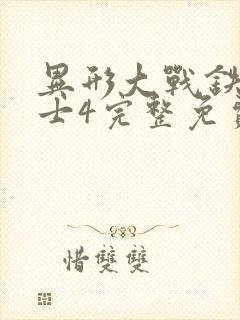 異形大戰鉄
士4完整免費
惜雙雙